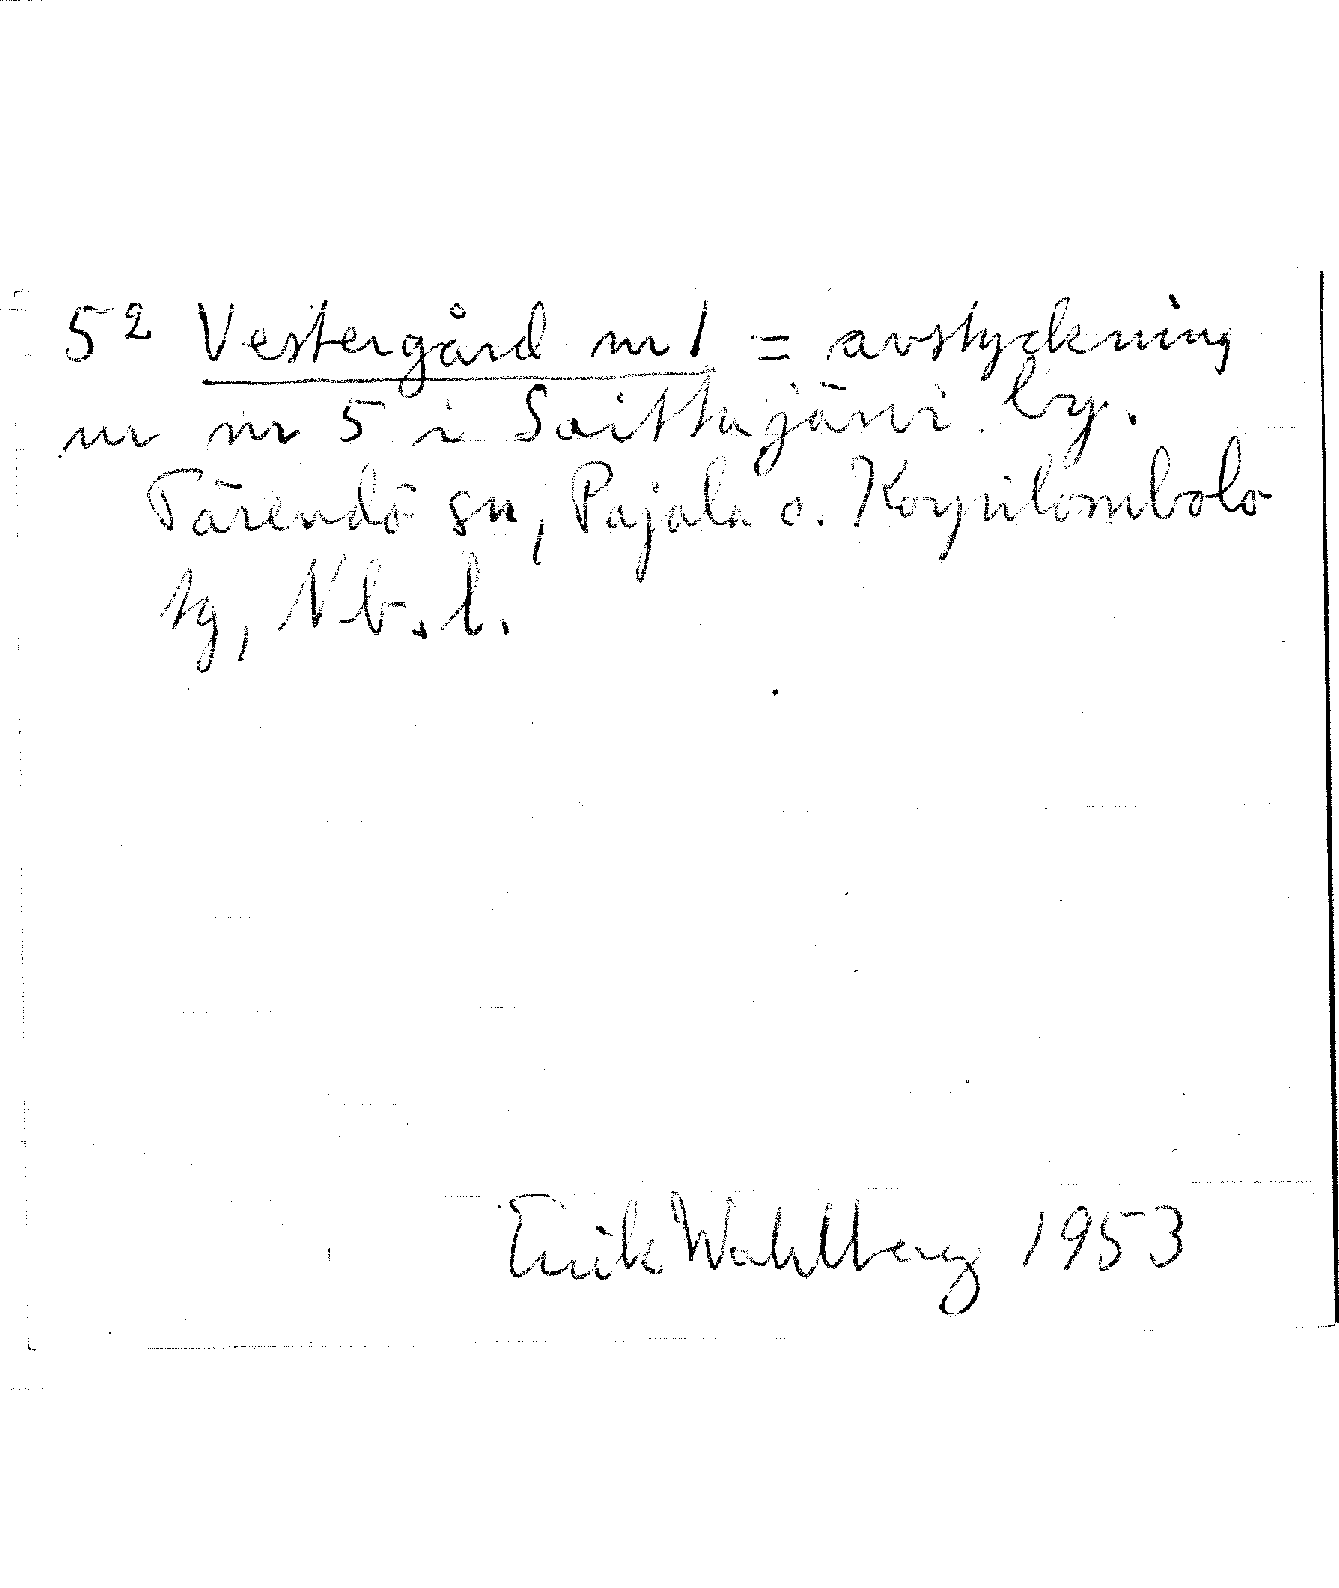 5² Vestergård nr 1 = avstyckning
ur nr 5 i Saittajärvi by.
Tärendö sn, Pajala o. Korpilombolo
tg, Nb. l.
Erik Wahlberg 1953